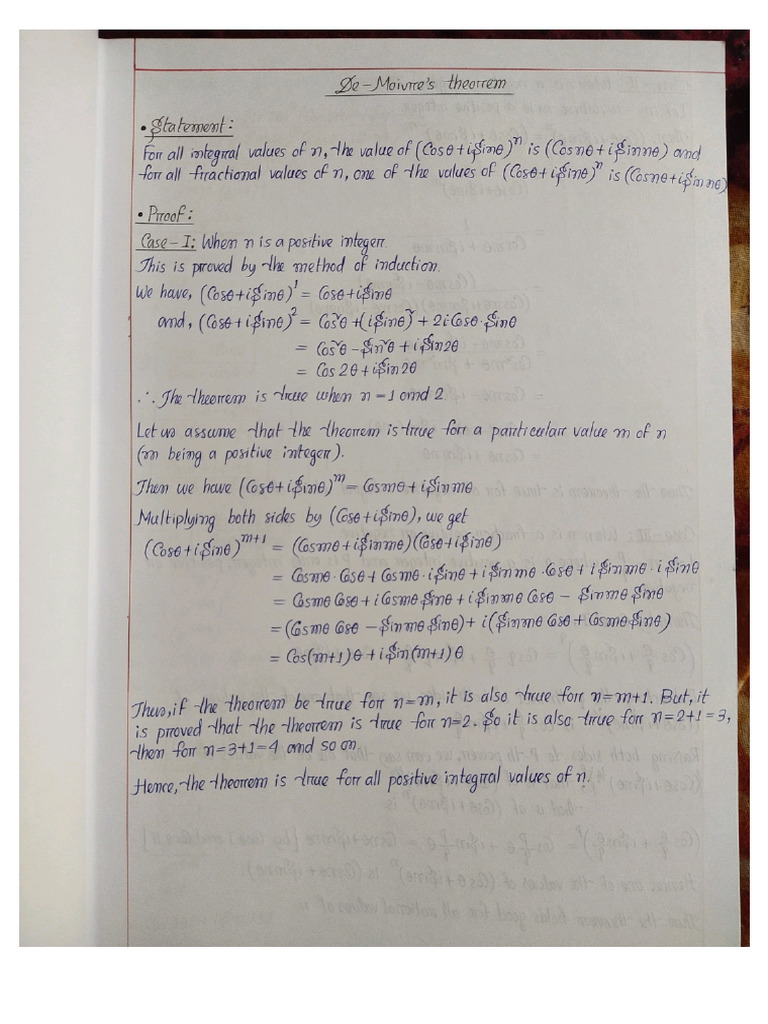 De-Moivre's theorem
• Statement:
For all integral values of n, the value of (Cosθ+iSinθ)ⁿ is (Cosnθ+iSinnθ) and
for all fractional values of n, one of the values of (Cosθ+iSinθ)ⁿ is (Cosnθ+iSinnθ)
• Proof:
Case-I: When n is a positive integer.
This is proved by the method of induction.
We have, (Cosθ+iSinθ)¹ = Cosθ+iSinθ
and, (Cosθ+iSinθ)² = Cos²θ+(iSinθ)²+2iCosθ·Sinθ
= Cos²θ-Sin²θ+iSin2θ
= Cos2θ+iSin2θ
∴ The theorem is true when n=1 and 2.
Let us assume that the theorem is true for a particular value m of n
(m being a positive integer).
Then we have (Cosθ+iSinθ)ᵐ = Cosmθ+iSinmθ
Multiplying both sides by (Cosθ+iSinθ), we get
(Cosθ+iSinθ)ᵐ⁺¹ = (Cosmθ+iSinmθ)(Cosθ+iSinθ)
= Cosmθ·Cosθ+Cosmθ·iSinθ+iSinmθ·Cosθ+iSinmθ·iSinθ
= Cosmθ Cosθ+iCosmθ Sinθ+iSinmθ Cosθ-Sinmθ Sinθ
= (Cosmθ Cosθ-Sinmθ Sinθ)+i(Sinmθ Cosθ+Cosmθ Sinθ)
= Cos(m+1)θ+iSin(m+1)θ
Thus, if the theorem be true for n=m, it is also true for n=m+1. But, it
is proved that the theorem is true for n=2. So it is also true for n=2+1=3,
then for n=3+1=4 and so on.
Hence, the theorem is true for all positive integral values of n.